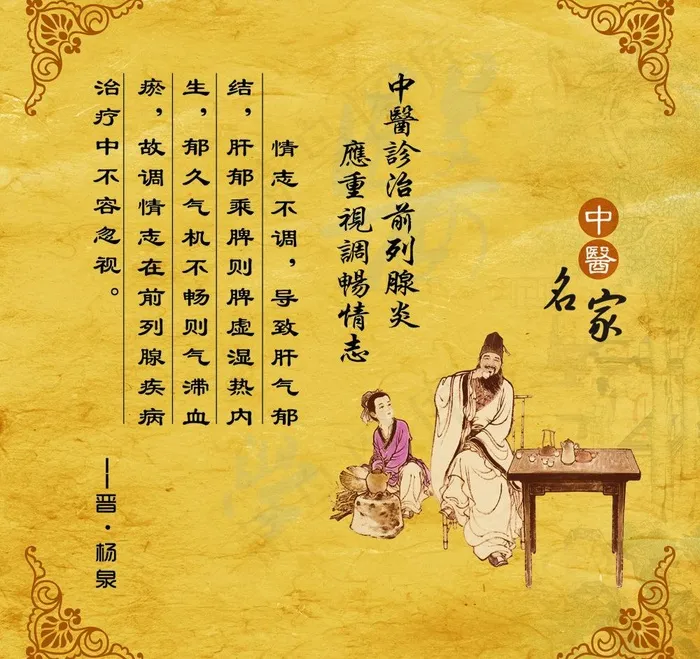 中醫
名家
中醫診治前列腺炎
應重視調暢情志
情志不调，导致肝气郁
结，肝郁乘脾则脾虚湿热内
生，郁久气机不畅则气滞血
瘀，故调情志在前列腺疾病
治疗中不容忽视。
——晋·杨泉